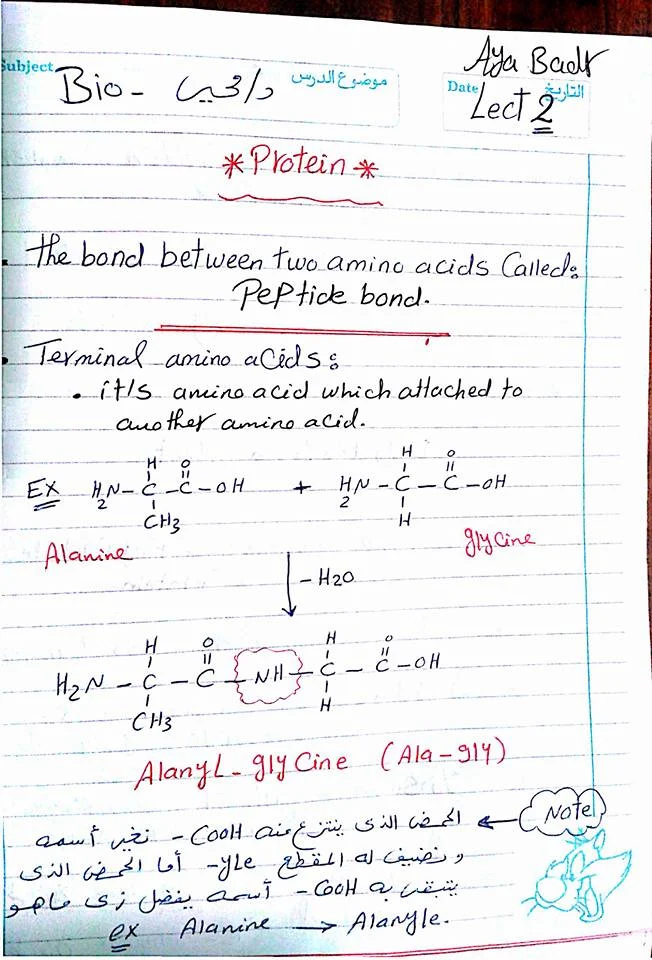 Aya Badr
Subject
Bio -
موضوع الدرس
Date
التاريخ
Lect 2
* Protein *
• the bond between two amino acids Called:
PePtide bond.
• Terminal amino acids:
• it's amino acid which attached to
another amino acid.
Ex
H O H O
H2N - C - C - OH + H2N - C - C - OH
CH3 H
Alanine glycine
- H2O
H O H O
H2N - C - C - NH - C - C - OH
CH3 H
AlanyL - glyCine (Ala - gly)
Note
الحمض الذى ينتزع منه COOH - نغير أسمه
و نضيف له المقطع yle- أما الحمض الذى
يتبقى به COOH - أسمه يفضل زى ماهو
ex Alanine → Alanyle.